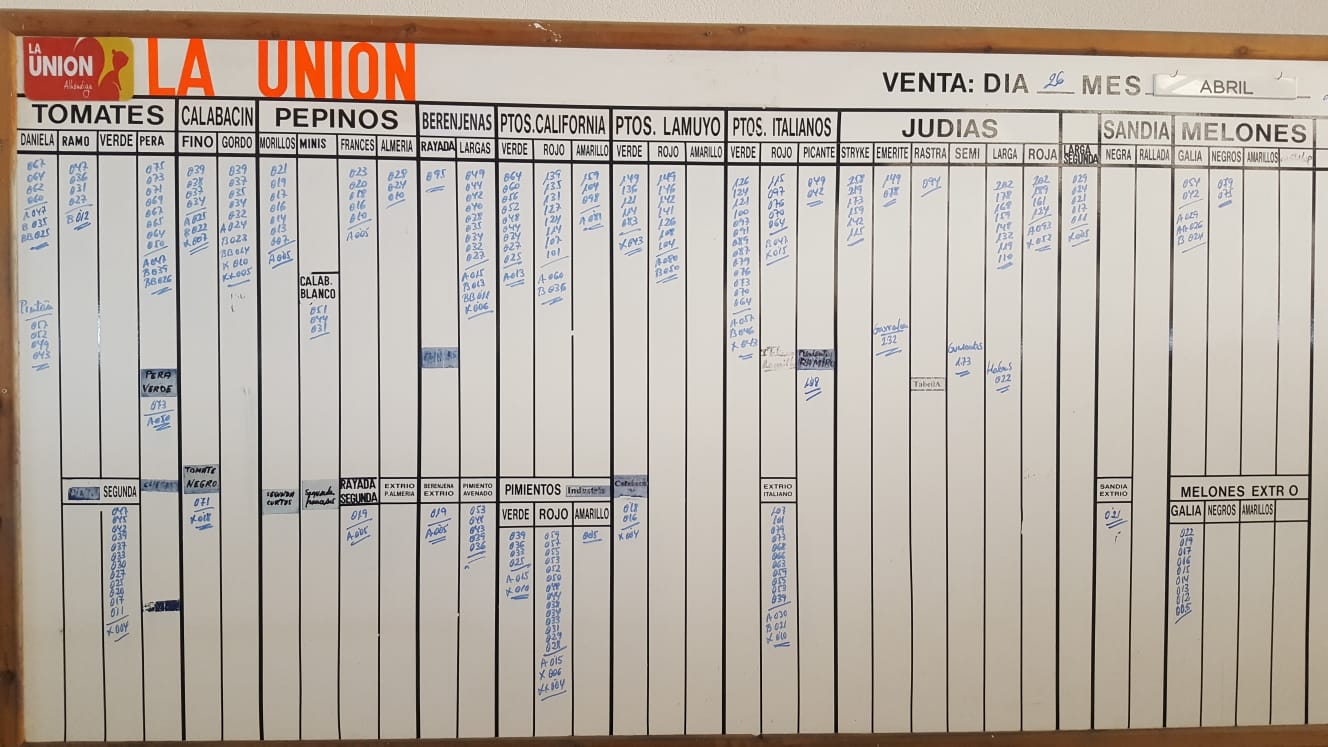 LA
UNION
Alhóndiga
LA UNION
VENTA: DIA 26 MES ABRIL
TOMATES CALABACIN PEPINOS BERENJENAS PTOS.CALIFORNIA PTOS. LAMUYO PTOS. ITALIANOS JUDIAS SANDIA MELONES
DANIELA RAMO VERDE PERA FINO GORDO MORILLOS MINIS FRANCES ALMERIA RAYADA LARGAS VERDE ROJO AMARILLO VERDE ROJO AMARILLO VERDE ROJO PICANTE STRYKE EMERITE RASTRA SEMI LARGA ROJA LARGA SEGUNDA NEGRA RALLADA GALIA NEGROS AMARILLOS
067
064
062
060
A047
B035
BB025
047
036
031
027
B012
075
073
071
069
067
065
064
050
A047
B039
BB026
039
038
037
034
A025
B022
X007
039
037
035
034
032
A024
B023
BB014
X010
XX005
021
019
017
016
014
013
007
A005
023
020
018
016
010
A005
028
024
010
095
049
044
042
040
038
035
034
032
027
A015
B013
BB011
X006
064
060
056
052
048
044
034
027
025
A013
139
135
131
127
124
114
107
101
A060
B036
159
104
098
A081
149
136
121
114
083
X043
149
146
142
141
126
108
104
A080
B050
126
124
121
100
097
091
089
087
079
076
073
070
064
A057
B046
X043
115
097
076
070
064
B047
X015
049
042
258
219
173
159
142
115
149
078
094
202
178
168
159
148
132
119
110
202
189
161
124
A093
X052
029
024
021
017
011
X005
054
042
A029
AA026
B024
079
075
CALAB.
BLANCO
051
044
031
057
052
049
043
Garrafal
232
Guisantes
173
Habas
022
RAMIRO
108
Tabella
PERA
VERDE
073
A050
SEGUNDA
TOMATE
NEGRO
SEGUNDA
CORTOS
Segunda
franceses
RAYADA
SEGUNDA
EXTRIO
P.ALMERIA
BERENJENA
EXTRIO
PIMIENTO
AVENADO
PIMIENTOS Industria
Calabaza
EXTRIO
ITALIANO
SANDIA
EXTRIO
MELONES EXTRIO
VERDE ROJO AMARILLO
GALIA NEGROS AMARILLOS
047
045
042
039
037
033
030
027
025
020
017
011
X004
071
X018
019
A005
019
A005
053
044
043
039
036
039
036
032
025
A015
X010
059
057
055
053
052
050
048
044
038
034
033
031
029
028
A015
X006
XX004
005
018
016
X004
107
101
079
073
068
066
063
059
055
053
039
A030
B021
X010
021
022
019
017
016
015
014
013
012
005